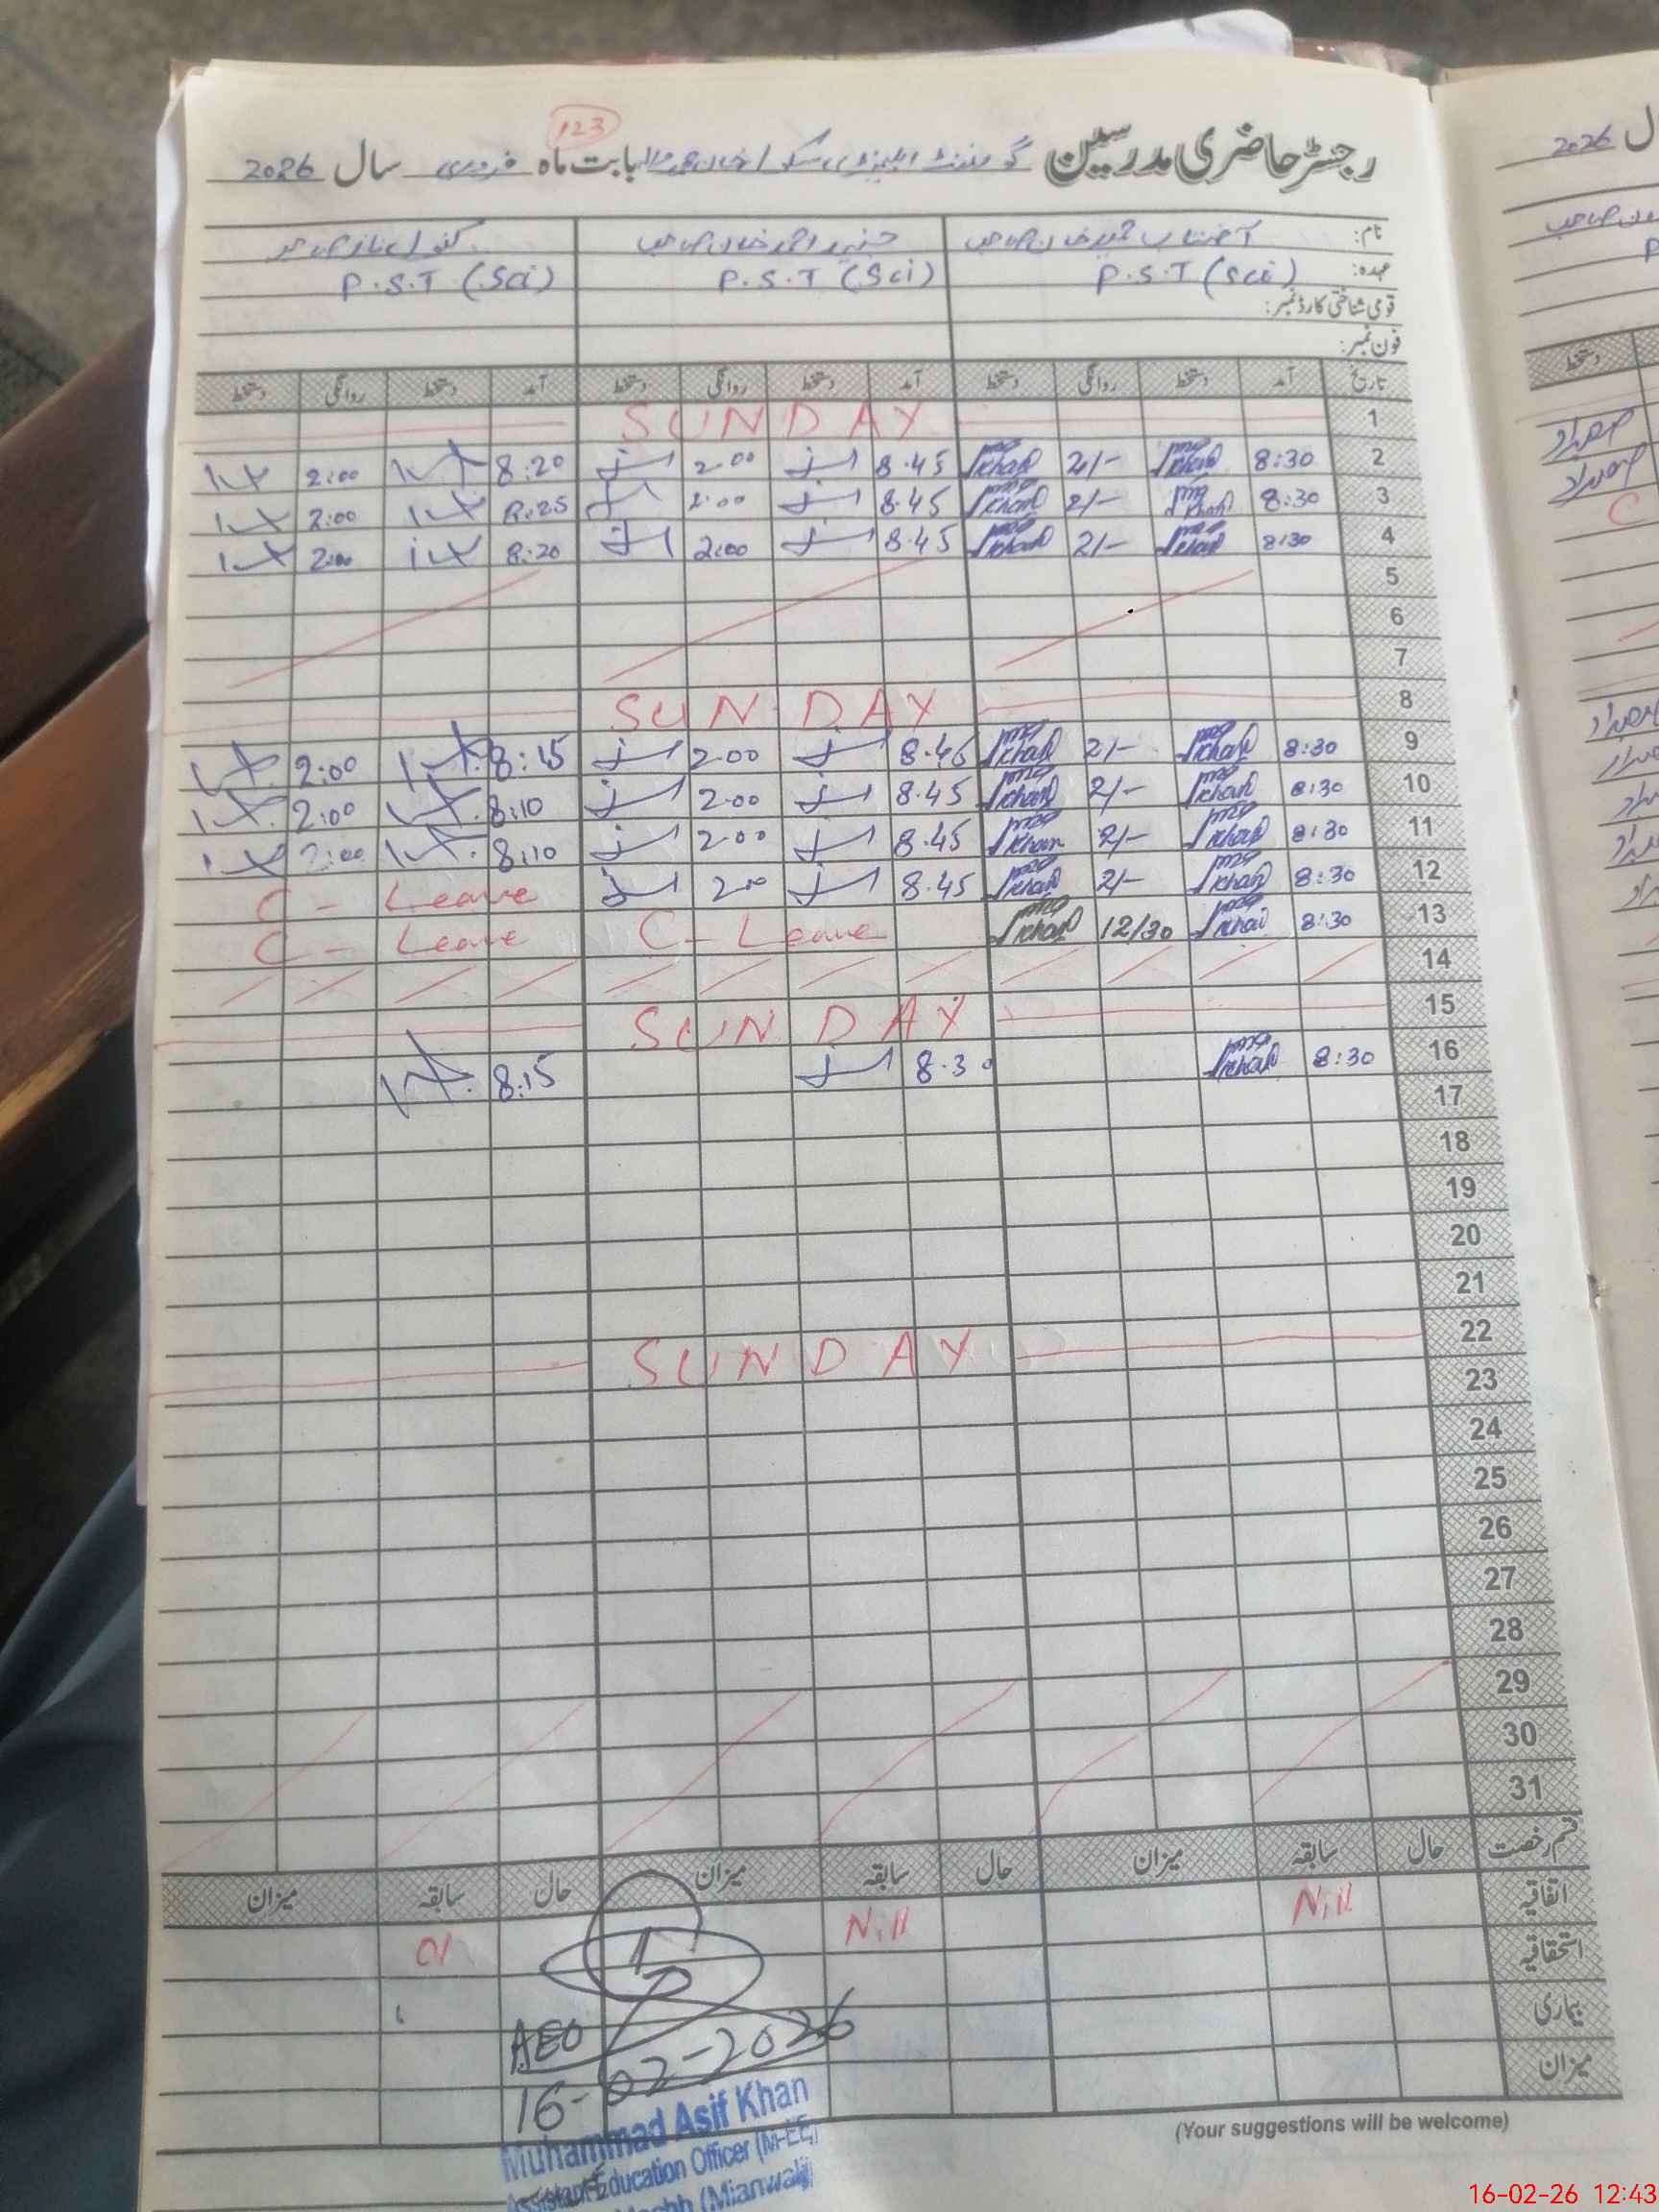 123
رجسٹر حاضری مدرسین گورنمنٹ ایلیمنٹری سکول بابت ماہ فروری سال 2026
نام: آفتاب خان صاحب جنید احمد خان صاحب کنول ناز صاحبہ
عہدہ: P.S.T (Sci) P.S.T (Sci) P.S.T (Sci)
قومی شناختی کارڈ نمبر:
فون نمبر:
تاریخ آمد دستخط روانگی دستخط آمد دستخط روانگی دستخط آمد دستخط روانگی دستخط
1 SUNDAY
2 8:30 Khan 2/- Khan 8.45 2.00 8:20 2:00
3 8:30 Khan 2/- Khan 8.45 2.00 8:25 2:00
4 8:30 Khan 2/- Khan 8.45 2:00 8:20 2:00
5
6
7
8 SUNDAY
9 8:30 Khan 2/- Khan 8.45 2.00 8:15 2:00
10 8:30 Khan 2/- Khan 8.45 2.00 8:10 2:00
11 8:30 Khan 2/- Khan 8.45 2.00 8:10 2:00
12 8:30 Khan 2/- Khan 8.45 2.00 C - Leave
13 8:30 Khan 12/30 Khan C - Leave C - Leave
14
15 SUNDAY
16 8:30 Khan 8.30 8:15
17
18
19
20
21
22 SUNDAY
23
24
25
26
27
28
29
30
31
قسم رخصت حال سابقہ میزان حال سابقہ میزان حال سابقہ میزان
اتفاقیہ Nill Nill 01
استحقاقیہ
بیماری
میزان
AEO
16-02-2026
Muhammad Asif Khan
Assistant Education Officer (M-EE)
(Mianwali)
(Your suggestions will be welcome)
سال 2026
16-02-26 12:43